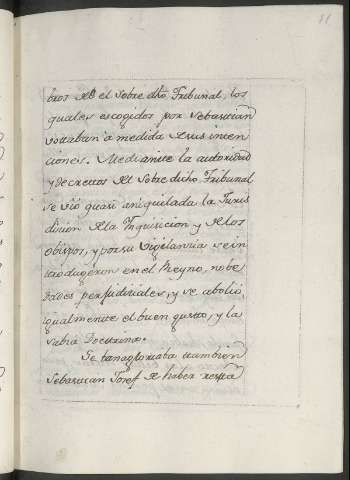 bros de el sobre dho Tribunal, los
quales escogidos por Sebastian
votaban à medida de sus inten
ciones. Mediante la autoridad
y decrettos del sobre dicho Tribunal
se viò quasi aniquilada la Juris
dicion de la Inquisicion y de los
obispos, y por su vigilancia se in
trodugeron en el Reyno, nobe
dades perjudiciales, y se aboliò
igualmente el buen gusto, y la
sabia Doctrina.
Se banagloriaba tambien
Sebastian Josef de haber resta